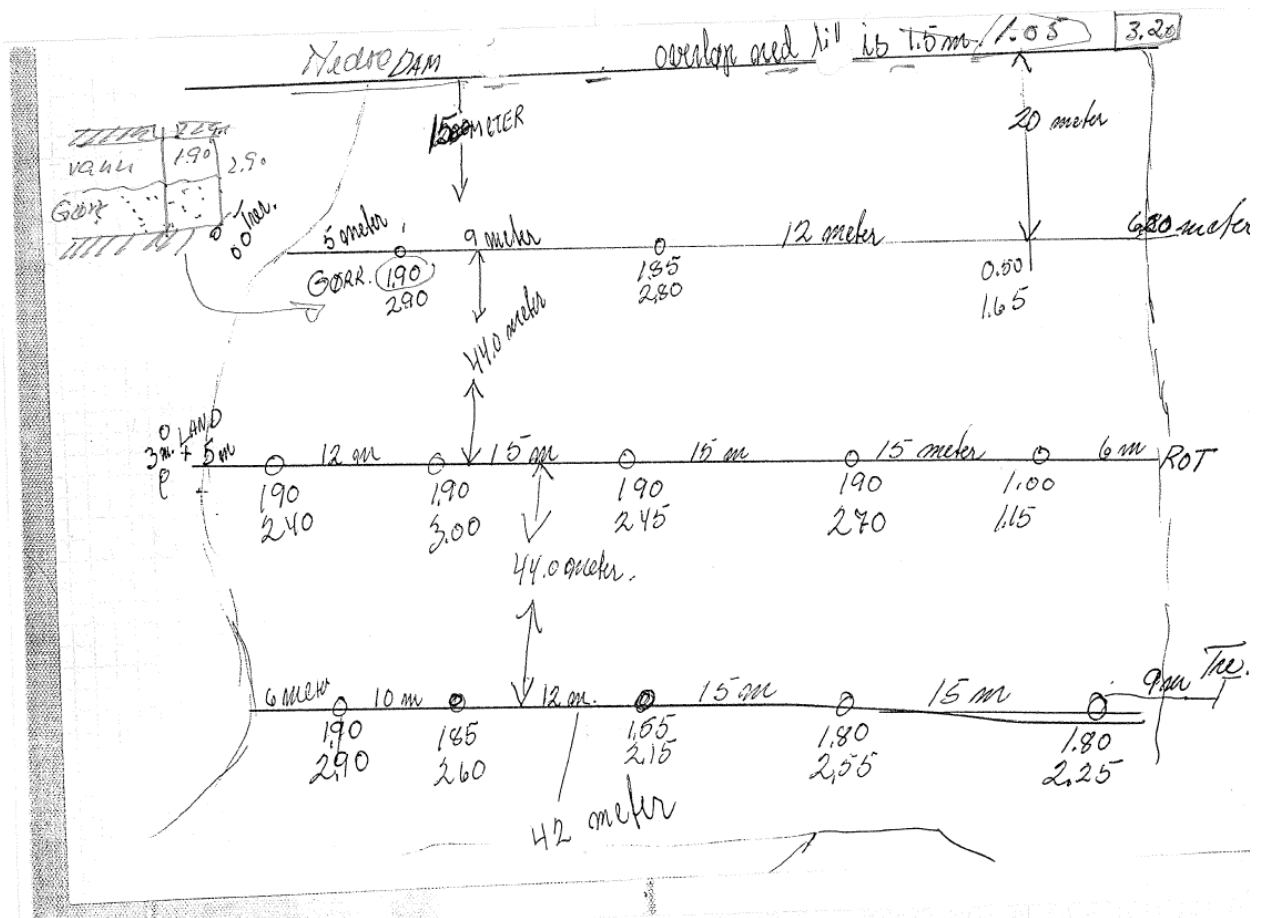 Nedre DAM
overlap ned till is 1.5m / 1.05
3.20
METER
20 meter
vann 1.90 2.90
Gørr
Trær.
5 meter 9 meter 12 meter meter
GØRR. 1.90 1.85 0.50
2.90 2.80 1.65
44.0 meter
LAND
3m. + 5m 12 m 15 m 15 m 15 meter 6 m ROT
1.90 1.90 1.90 1.90 1.00
2.40 3.00 2.45 2.70 1.15
44.0 meter.
6 meter 10 m 12 m. 15 m 15 m 9m Tre.
1.90 1.85 1.55 1.80 1.80
2.90 2.60 2.15 2.55 2.25
42 meter